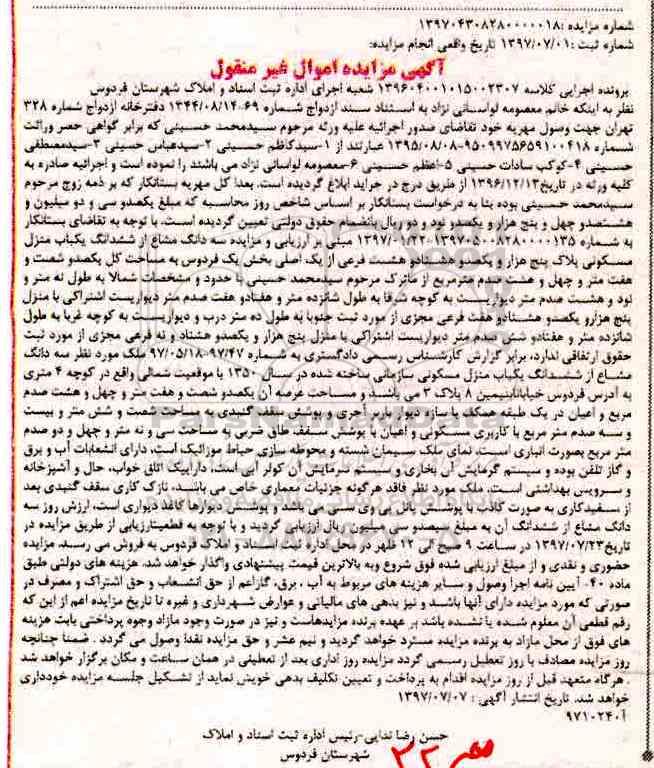 شماره مزایده :۱۳۹۷۰۴۳۰۸۲۸۰۰۰۰۰۱۸
شماره ثبت :۱۳۹۷/۰۷/۰۱ تاریخ واقعی انجام مزایده:
آگهی مزایده اموال غیر منقول
پرونده اجرایی کلاسه ۱۳۹۶۰۴۰۰۱۰۱۵۰۰۲۳۰۷ شعبه اجرای اداره ثبت اسناد و املاک شهرستان فردوس
نظر به اینکه خانم معصومه لواسانی نژاد به استناد سند ازدواج شماره ۶۹-۱۳۴۴/۰۸/۱۴ دفترخانه ازدواج شماره ۳۲۸
تهران جهت وصول مهریه خود تقاضای صدور اجرائیه علیه ورثه مرحوم سیدمحمد حسینی که برابر گواهی حصر وراثت
شماره ۹۵۰۹۹۷۵۶۵۹۱۰۰۴۱۸-۱۳۹۵/۰۸/۰۸ عبارتند از ۱-سیدکاظم حسینی ۲-سیدعباس حسینی ۳-سیدمصطفی
حسینی ۴-کوکب سادات حسینی ۵-اعظم حسینی ۶-معصومه لواسانی نژاد می باشند را نموده است و اجرائیه صادره به
کلیه ورثه در تاریخ۱۳۹۶/۱۲/۱۳ از طریق درج در جراید ابلاغ گردیده است. بعدا کل مهریه بستانکار که بر ذمه زوج مرحوم
سیدمحمد حسینی بوده بنا به درخواست بستانکار بر اساس شاخص روز محاسبه که مبلغ یکصدو سی و دو میلیون و
هشتصدو چهل و پنج هزار و یکصدو نود و دو ریال بانضمام حقوق دولتی تعیین گردیده است. با توجه به تقاضای بستانکار
به شماره ۱۳۹۷۰۵۰۰۸۲۸۰۰۰۰۱۳۵-۱۳۹۷/۰۱/۲۲ مبنی بر ارزیابی و مزایده سه دانگ مشاع از ششدانگ یکباب منزل
مسکونی پلاک پنج هزار و یکصدو هشتادو هشت فرعی از یک اصلی بخش یک فردوس به مساحت کل یکصدو شصت و
هفت متر و چهل و هشت صدم مترمربع از ماترک مرحوم سیدمحمد حسینی با حدود و مشخصات شمالا به طول نه متر و
نود و هشت صدم متر دیواریست به کوچه شرقا به طول شانزده متر و هفتادو هفت صدم متر دیواریست اشتراکی با منزل
پنج هزارو یکصدو هشتادو هفت فرعی مجزی از مورد ثبت جنوبا به طول ده متر درب و دیواریست به کوچه غربا به طول
شانزده متر و هفتادو شش صدم متر دیواریست اشتراکی با منزل پنج هزار و یکصدو هشتاد و نه فرعی مجزی از مورد ثبت
حقوق ارتفاقی ندارد، برابر گزارش کارشناس رسمی دادگستری به شماره ۹۷/۴۷-۹۷/۰۵/۱۸ ملک مورد نظر سه دانگ
مشاع از ششدانگ یکباب منزل مسکونی سازمانی ساخته شده در سال ۱۳۵۰ با موقعیت شمالی واقع در کوچه ۴ متری
به آدرس فردوس پلاک ۳ می باشد و مساحت عرصه آن یکصدو شصت و هفت متر و چهل و هشت صدم
مربع و اعیان در یک طبقه همکف با سازه دیوار باربر آجری و پوشش سقف گنبدی به مساحت شصت و شش متر و بیست
و سه صدم متر مربع با کاربری مسکونی و اعیان با پوشش سقف، طاق ضربی به مساحت سی و نه متر و چهل و دو صدم
متر مربع بصورت انباری است، نمای ملک سیمان شسته و محوطه سازی حیاط موزائیک است، دارای انشعابات آب و برق
و گاز تلفن بوده و سیستم گرمایش آن بخاری و سیستم سرمایش آن کولر آبی است، دارایبک اتاق خواب، حال و آشپزخانه
و سرویس بهداشتی است. ملک مورد نظر فاقد هرگونه جزئیات معماری خاص می باشد، نازک کاری سقف گنبدی بعد
از سفیدکاری به صورت کاذب با پوشش پانل پی وی سی می باشد و پوشش دیوارها کاغذ دیواری است، ارزش روز سه
دانگ مشاع از ششدانگ آن به مبلغ سیصدو سی میلیون ریال ارزیابی گردید و با توجه به قطعیتارزیابی از طریق مزایده در
تاریخ۱۳۹۷/۰۷/۲۳ در ساعت ۹ صبح الی ۱۲ ظهر در محل اداره ثبت اسناد و املاک فردوس به فروش می رسد. مزایده
حضوری و نقدی و از مبلغ ارزیابی شده فوق شروع وبه بالاترین قیمت پیشنهادی واگذار خواهد شد. هزینه های دولتی طبق
ماده ۴۰- آیین نامه اجرا وصول و سایر هزینه های مربوط به آب ، برق، گازاعم از حق انشعاب و حق اشتراک و مصرف در
صورتی که مورد مزایده دارای آنها باشد و نیز بدهی های مالیاتی و عوارض شهرداری و غیره تا تاریخ مزایده اعم از این که
رقم قطعی آن معلوم شده یا نشده باشد بر عهده برنده مزایدهاست و نیز در صورت وجود مازاد وجوه پرداختی بابت هزینه
های فوق از محل مازاد به برنده مزایده مسترد خواهد گردید و نیم عشر و حق مزایده نقدا وصول می گردد . ضمنا چنانچه
روز مزایده مصادف با روز تعطیل رسمی گردد مزایده روز اداری بعد از تعطیلی در همان ساعت و مکان برگزار خواهد شد
. هرگاه متعهد قبل از روز مزایده اقدام به پرداخت و تعیین تکلیف بدهی خویش نماید از تشکیل جلسه مزایده خودداری
خواهد شد. تاریخ انتشار آگهی : ۱۳۹۷/۰۷/۰۷
آ۹۷۱۰۲۴۰
حسن رضا ندایی-رئیس اداره ثبت اسناد و املاک
شهرستان فردوس